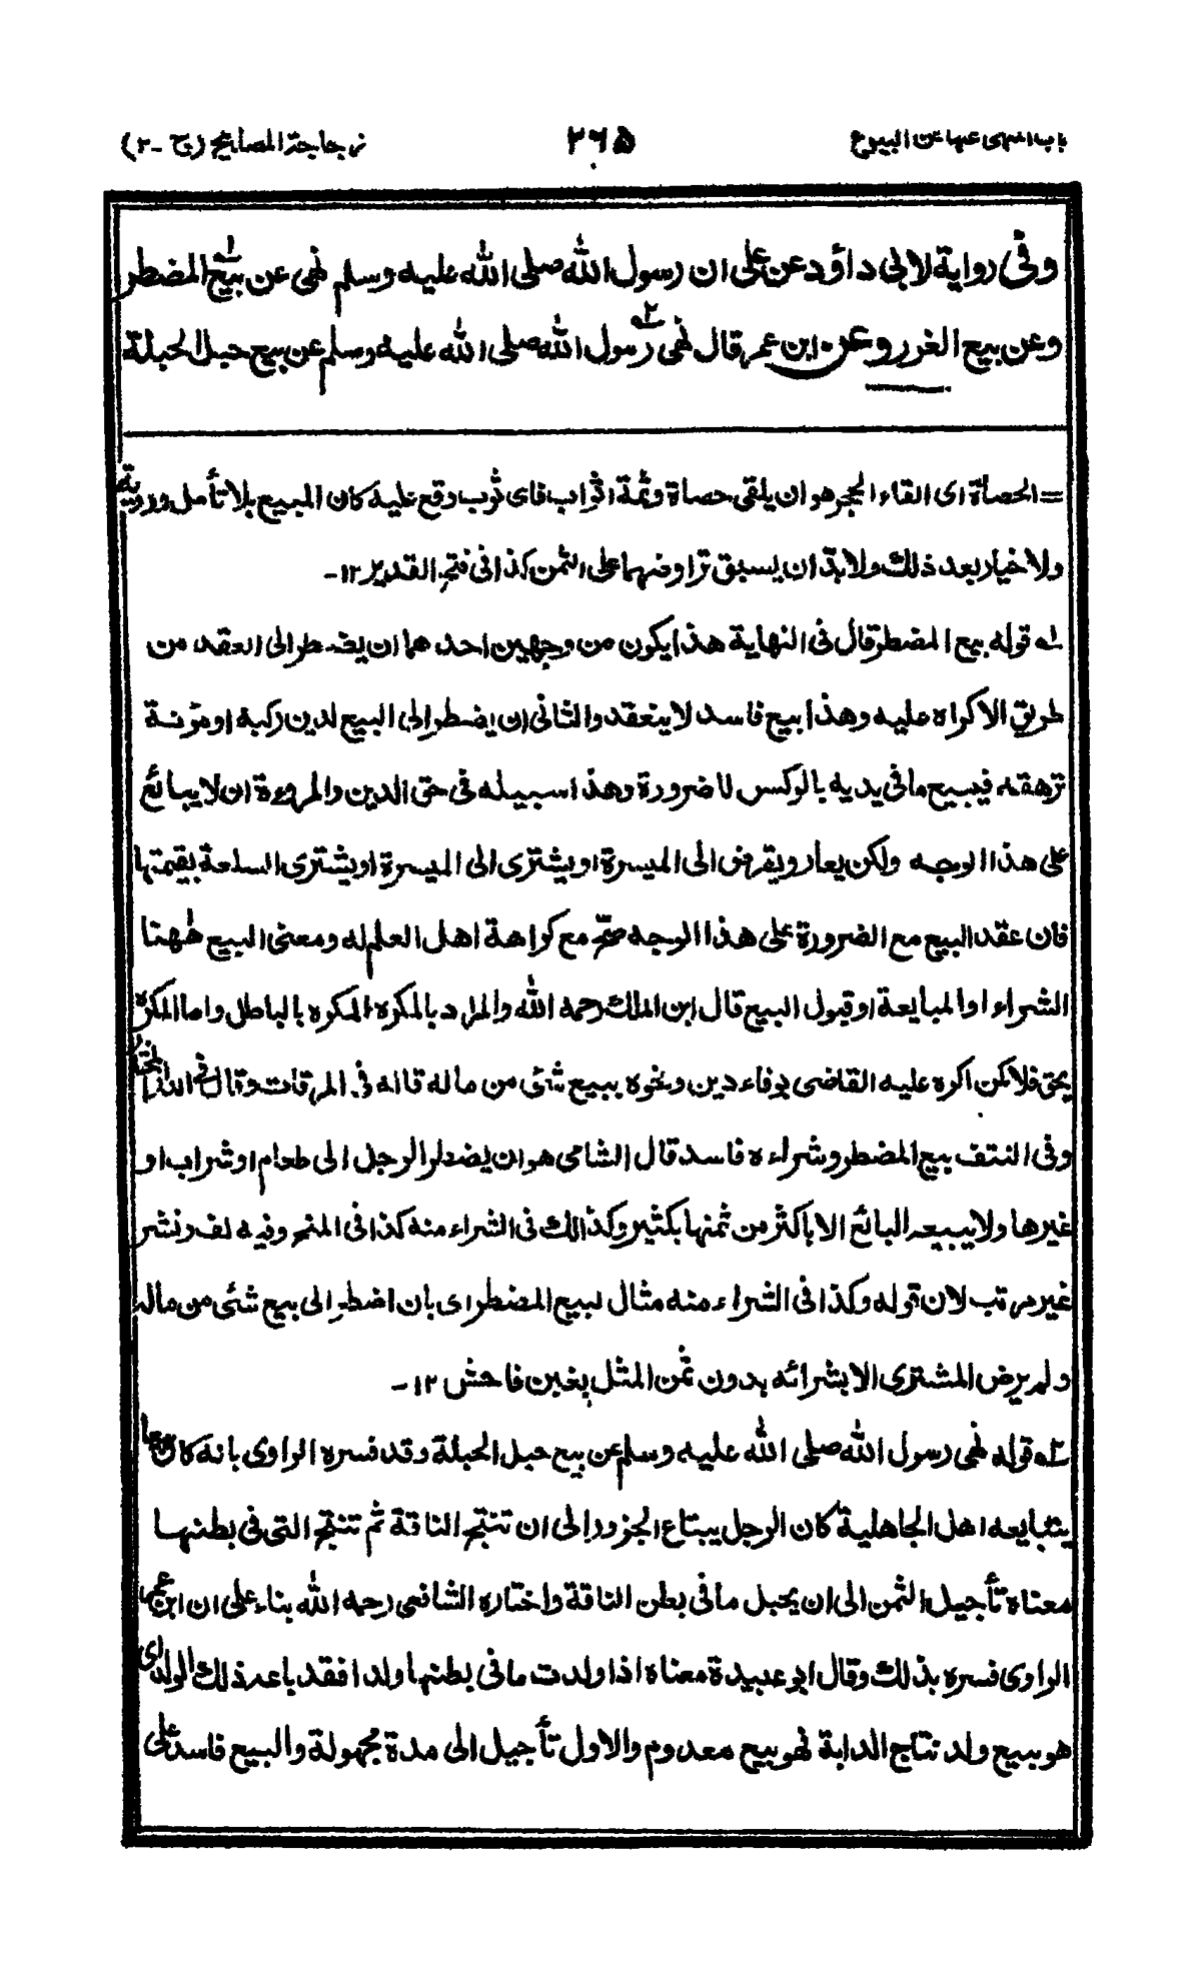 باب المنهی عنها من البیوع
۲۶۵
زجاجة المصابیح (ج - ۲)
وفی روایة لابی داؤد عن علی ان رسول الله صلی الله علیه وسلم نهی عن بیع المضطر
وعن بیع الغرر وعن ابن عمر قال نهی رسول الله صلی الله علیه وسلم عن بیع حبل الحبلة
= الحصاة ای القاء الحجر هو ان یلقی حصاة وثمة اثواب فای ثوب وقع علیه کان المبیع بلا تأمل ورویة
ولا خیار بعد ذلك ولا بدّ ان یسبق تراوضهما علی الثمن کذا فی فتح القدیر ۱۲-
۱ه قوله بیع المضطر قال فی النهایة هذا یکون من وجهین احدهما ان یضطر الی العقد من
طریق الاکراه علیه وهذا بیع فاسد لا ینعقد والثانی ان یضطر الی البیع لدین رکبه او مؤنة
ترهقه فیبیع ما فی یدیه بالوکس للضرورة وهذا سبیله فی حق الدین والمروءة ان لا یبائع
علی هذا الوجه ولکن یعار ویقرض الی المیسرة او یشتری الی المیسرة او یشتری السلعة بقیمتها
فان عقد البیع مع الضرورة علی هذا الوجه صحّ مع کراهة اهل العلم له ومعنی البیع ههنا
الشراء او المبایعة او قبول البیع قال ابن الملك رحمه الله والمراد بالمکره المکره بالباطل واما المکره
بحق فلا کمن اکره علیه القاضی بوفاء دین ونحوه ببیع شئ من ماله قاله فی المرقات وقال فی الدر المختار
وفی النتف بیع المضطر وشراءه فاسد قال الشامی هو ان یضطر الرجل الی طعام او شراب او
غیرها ولا یبیعه البائع الا باکثر من ثمنها بکثیر وکذالك فی الشراء منه کذا فی المنح وفیه لف ونشر
غیر مرتب لان قوله وکذا فی الشراء منه مثال لبیع المضطر ای بان اضطر الی بیع شئ من ماله
ولم یرض المشتری الا بشرائه بدون ثمن المثل بغبن فاحش ۱۲-
۲ه قوله نهی رسول الله صلی الله علیه وسلم عن بیع حبل الحبلة وقد فسره الراوی بانه کان بیعا
یتبایعه اهل الجاهلیة کان الرجل یبتاع الجزور الی ان تنتج الناقة ثم تنتج التی فی بطنها
معناه تأجیل الثمن الی ان یحبل ما فی بطن الناقة واختاره الشافعی رحمه الله بناء علی ان ابن عمر
الراوی فسره بذلك وقال ابو عبیدة معناه اذا ولدت ما فی بطنها ولدا فقد باعه ذلك الولد ای
هو بیع ولد نتاج الدابة فهو بیع معدوم والاول تأجیل الی مدة مجهولة والبیع فاسد علی